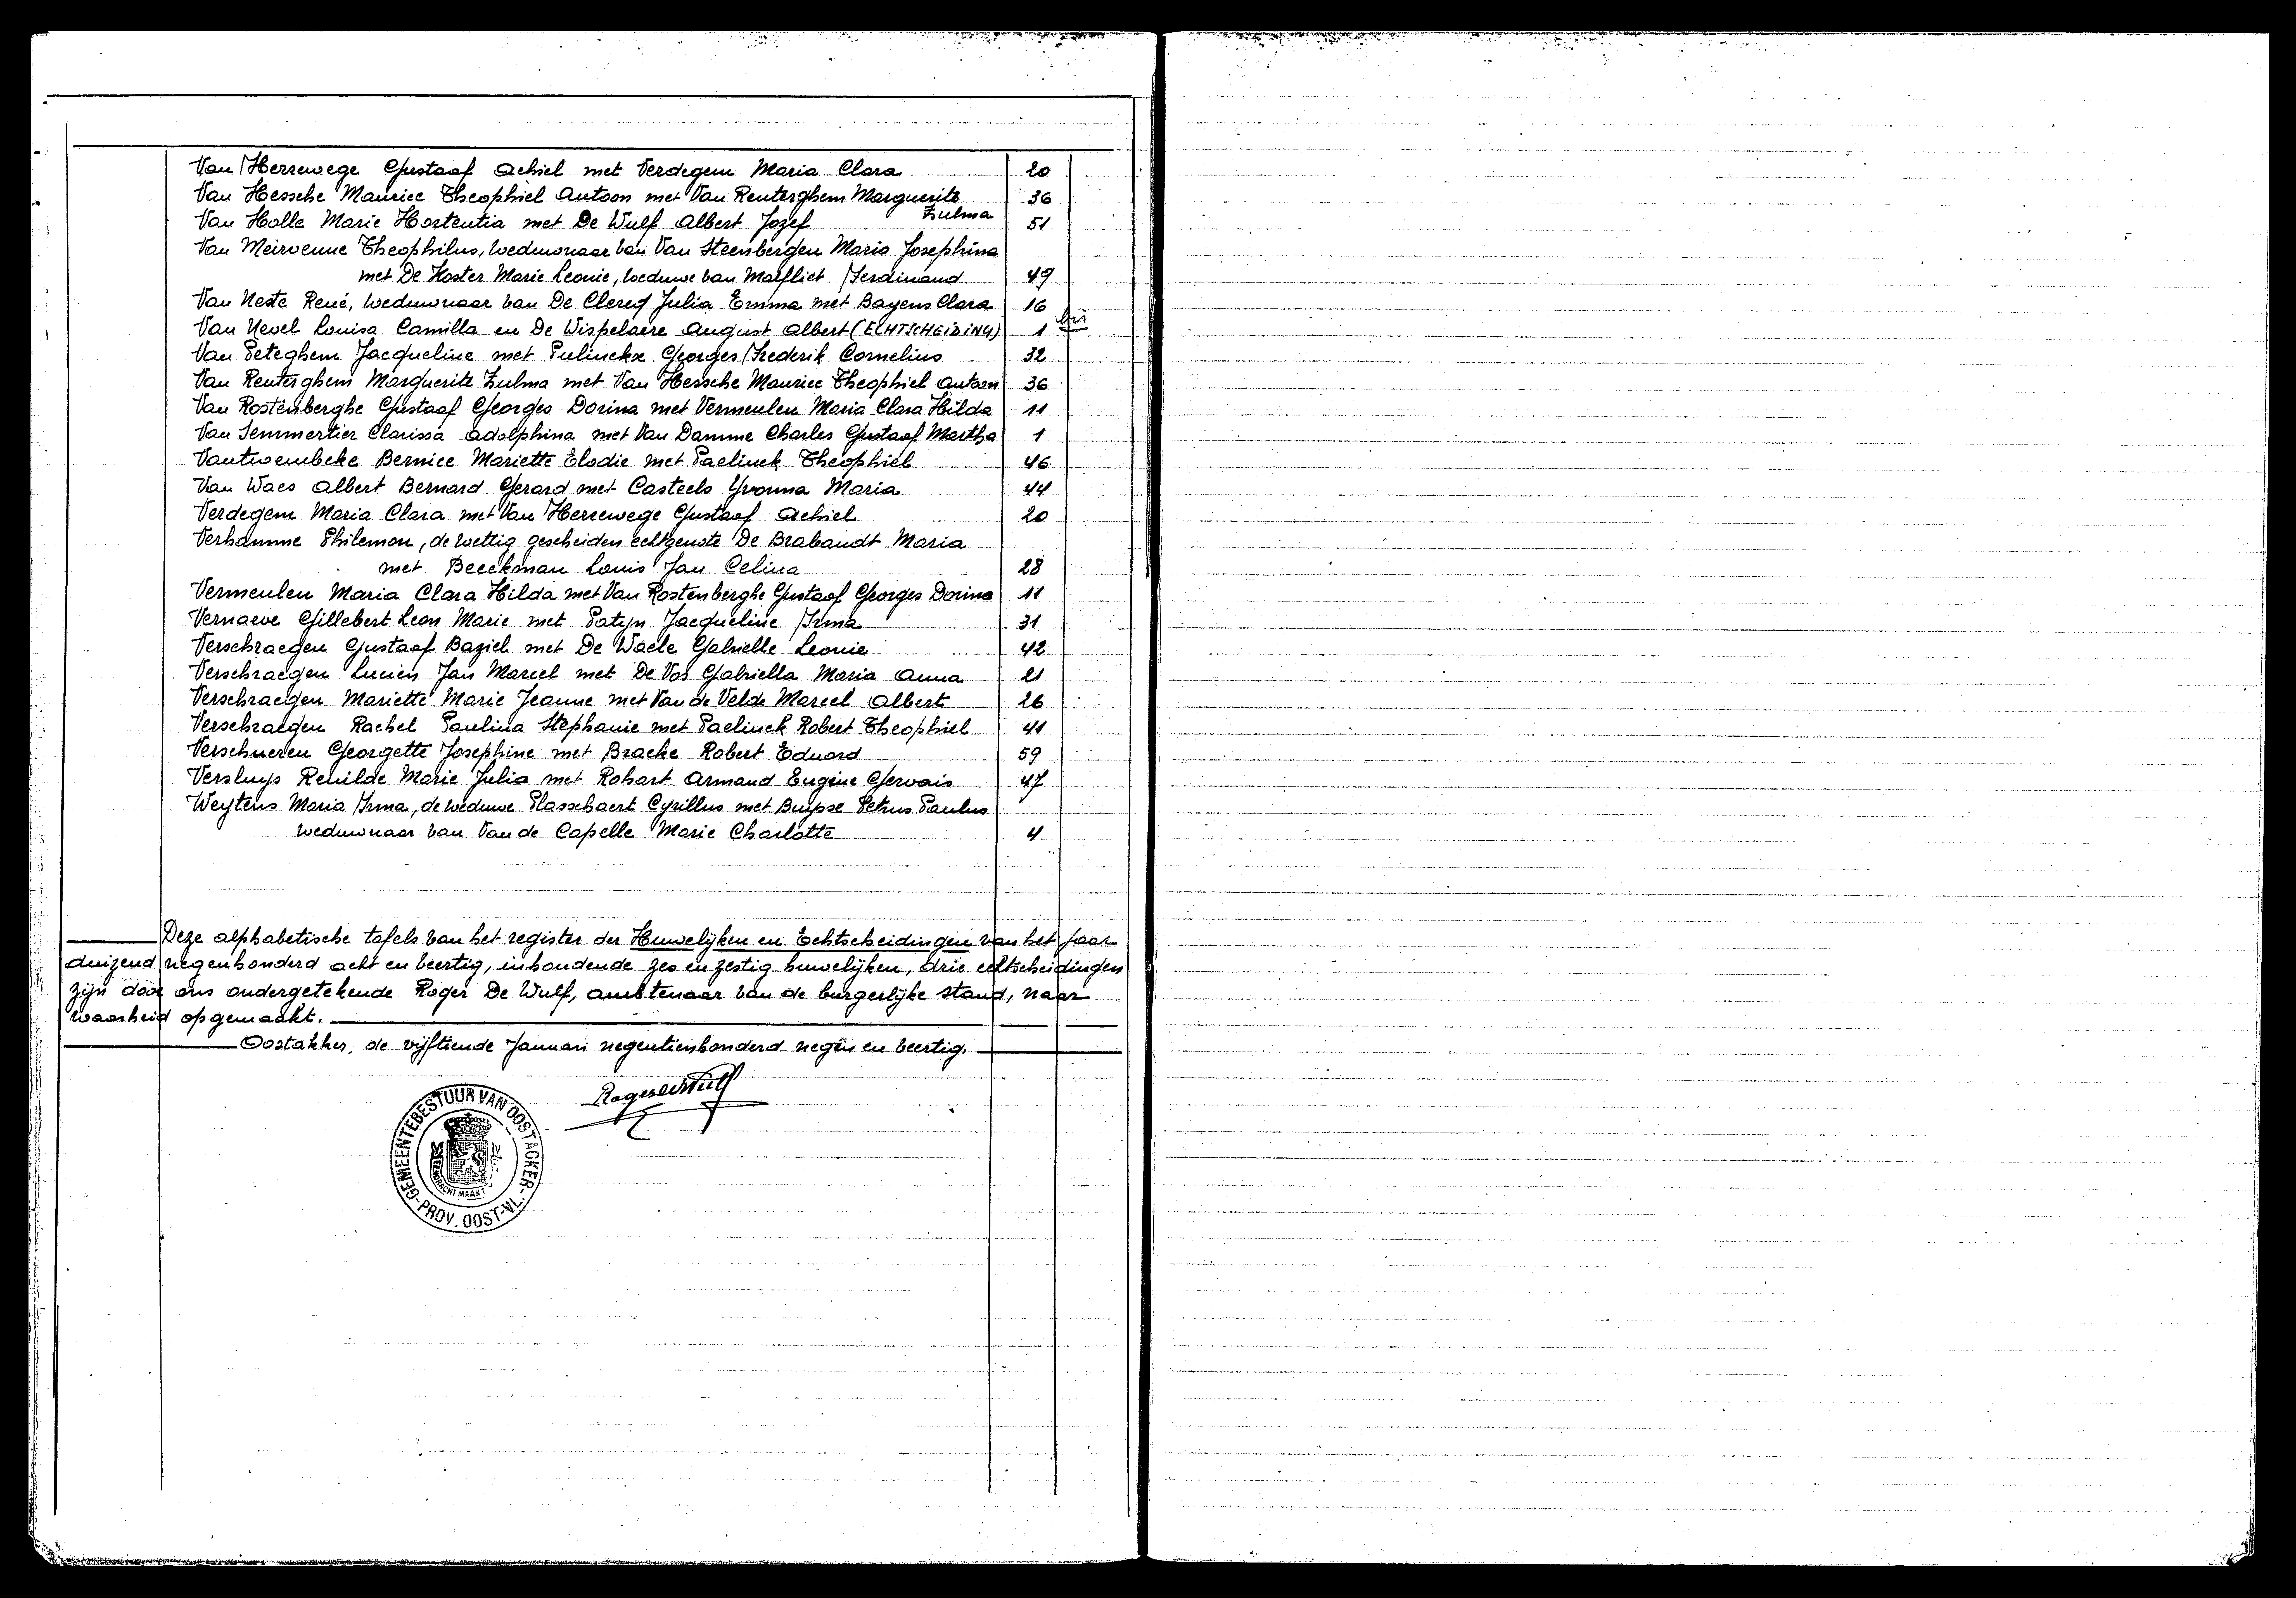 Van Herrewege Gustaaf Achiel met Verdegem Maria Clara 20
Van Hessche Maurice Theophiel Antoon met Van Renterghem Marguerite Zulma 36
Van Holle Marie Hortentia met De Wulf Albert Jozef 51
Van Meirvenne Theophilus, weduwnaar van Van Steenbergen Maria Josephina
met De Koster Marie Leonie, weduwe van Malfliet Ferdinand 49
Van Neste René, weduwnaar van De Clercq Julia Emma met Bayens Clara 16
Van Nevel Louisa Camilla en De Wispelaere August Albert (ECHTSCHEIDING) 1 bis
Van Peteghem Jacqueline met Pulinckx Georges Frederik Cornelius 32
Van Renterghem Marguerite Zulma met Van Hessche Maurice Theophiel Antoon 36
Van Rostenberghe Gustaaf Georges Dorina met Vermeulen Maria Clara Hilda 11
Van Semmertier Clarissa Adolphina met Van Damme Charles Gustaaf Martha 1
Vantwembeke Bernice Mariette Elodie met Paelinck Theophiel 46
Van Waes Albert Bernard Gerard met Casteels Yvonna Maria 44
Verdegem Maria Clara met Van Herrewege Gustaaf Achiel 20
Verhamme Philemon, de wettig gescheiden echtgenote De Brabandt Maria
met Beeckman Louis Jan Celina 28
Vermeulen Maria Clara Hilda met Van Rostenberghe Gustaaf Georges Dorina 11
Vernaeve Gillebert Leon Marie met Patijn Jacqueline Irma 31
Verschraegen Gustaaf Baziel met De Waele Gabrielle Leonie 42
Verschraegen Lucien Jan Marcel met De Vos Gabriella Maria Anna 21
Verschraegen Mariette Marie Jeanne met Van de Velde Marcel Albert 26
Verschraegen Rachel Paulina Stephanie met Paelinck Robert Theophiel 41
Verschueren Georgette Josephine met Bracke Robert Eduard 59
Versluys Renilde Marie Julia met Rohart Armand Eugène Gervais 47
Weytens Maria Irma, de weduwe Plasschaert Cyrillus met Buysse Petrus Paulus
weduwnaar van Van de Capelle Marie Charlotte 4
Deze alphabetische tafels van het register der Huwelijken en Echtscheidingen van het jaar
duizend negenhonderd acht en veertig, inhoudende zes en zestig huwelijken, drie echtscheidingen
zijn door ons ondergetekende Roger De Wulf, ambtenaar van de burgerlijke stand, naar
waarheid opgemaakt.
Oostakker, de vijftiende Januari negentienhonderd negen en veertig.
Roger De Wulf
GEMEENTEBESTUUR VAN OOSTACKER
-PROV. OOST-VL.-
EENDRACHT MAAKT